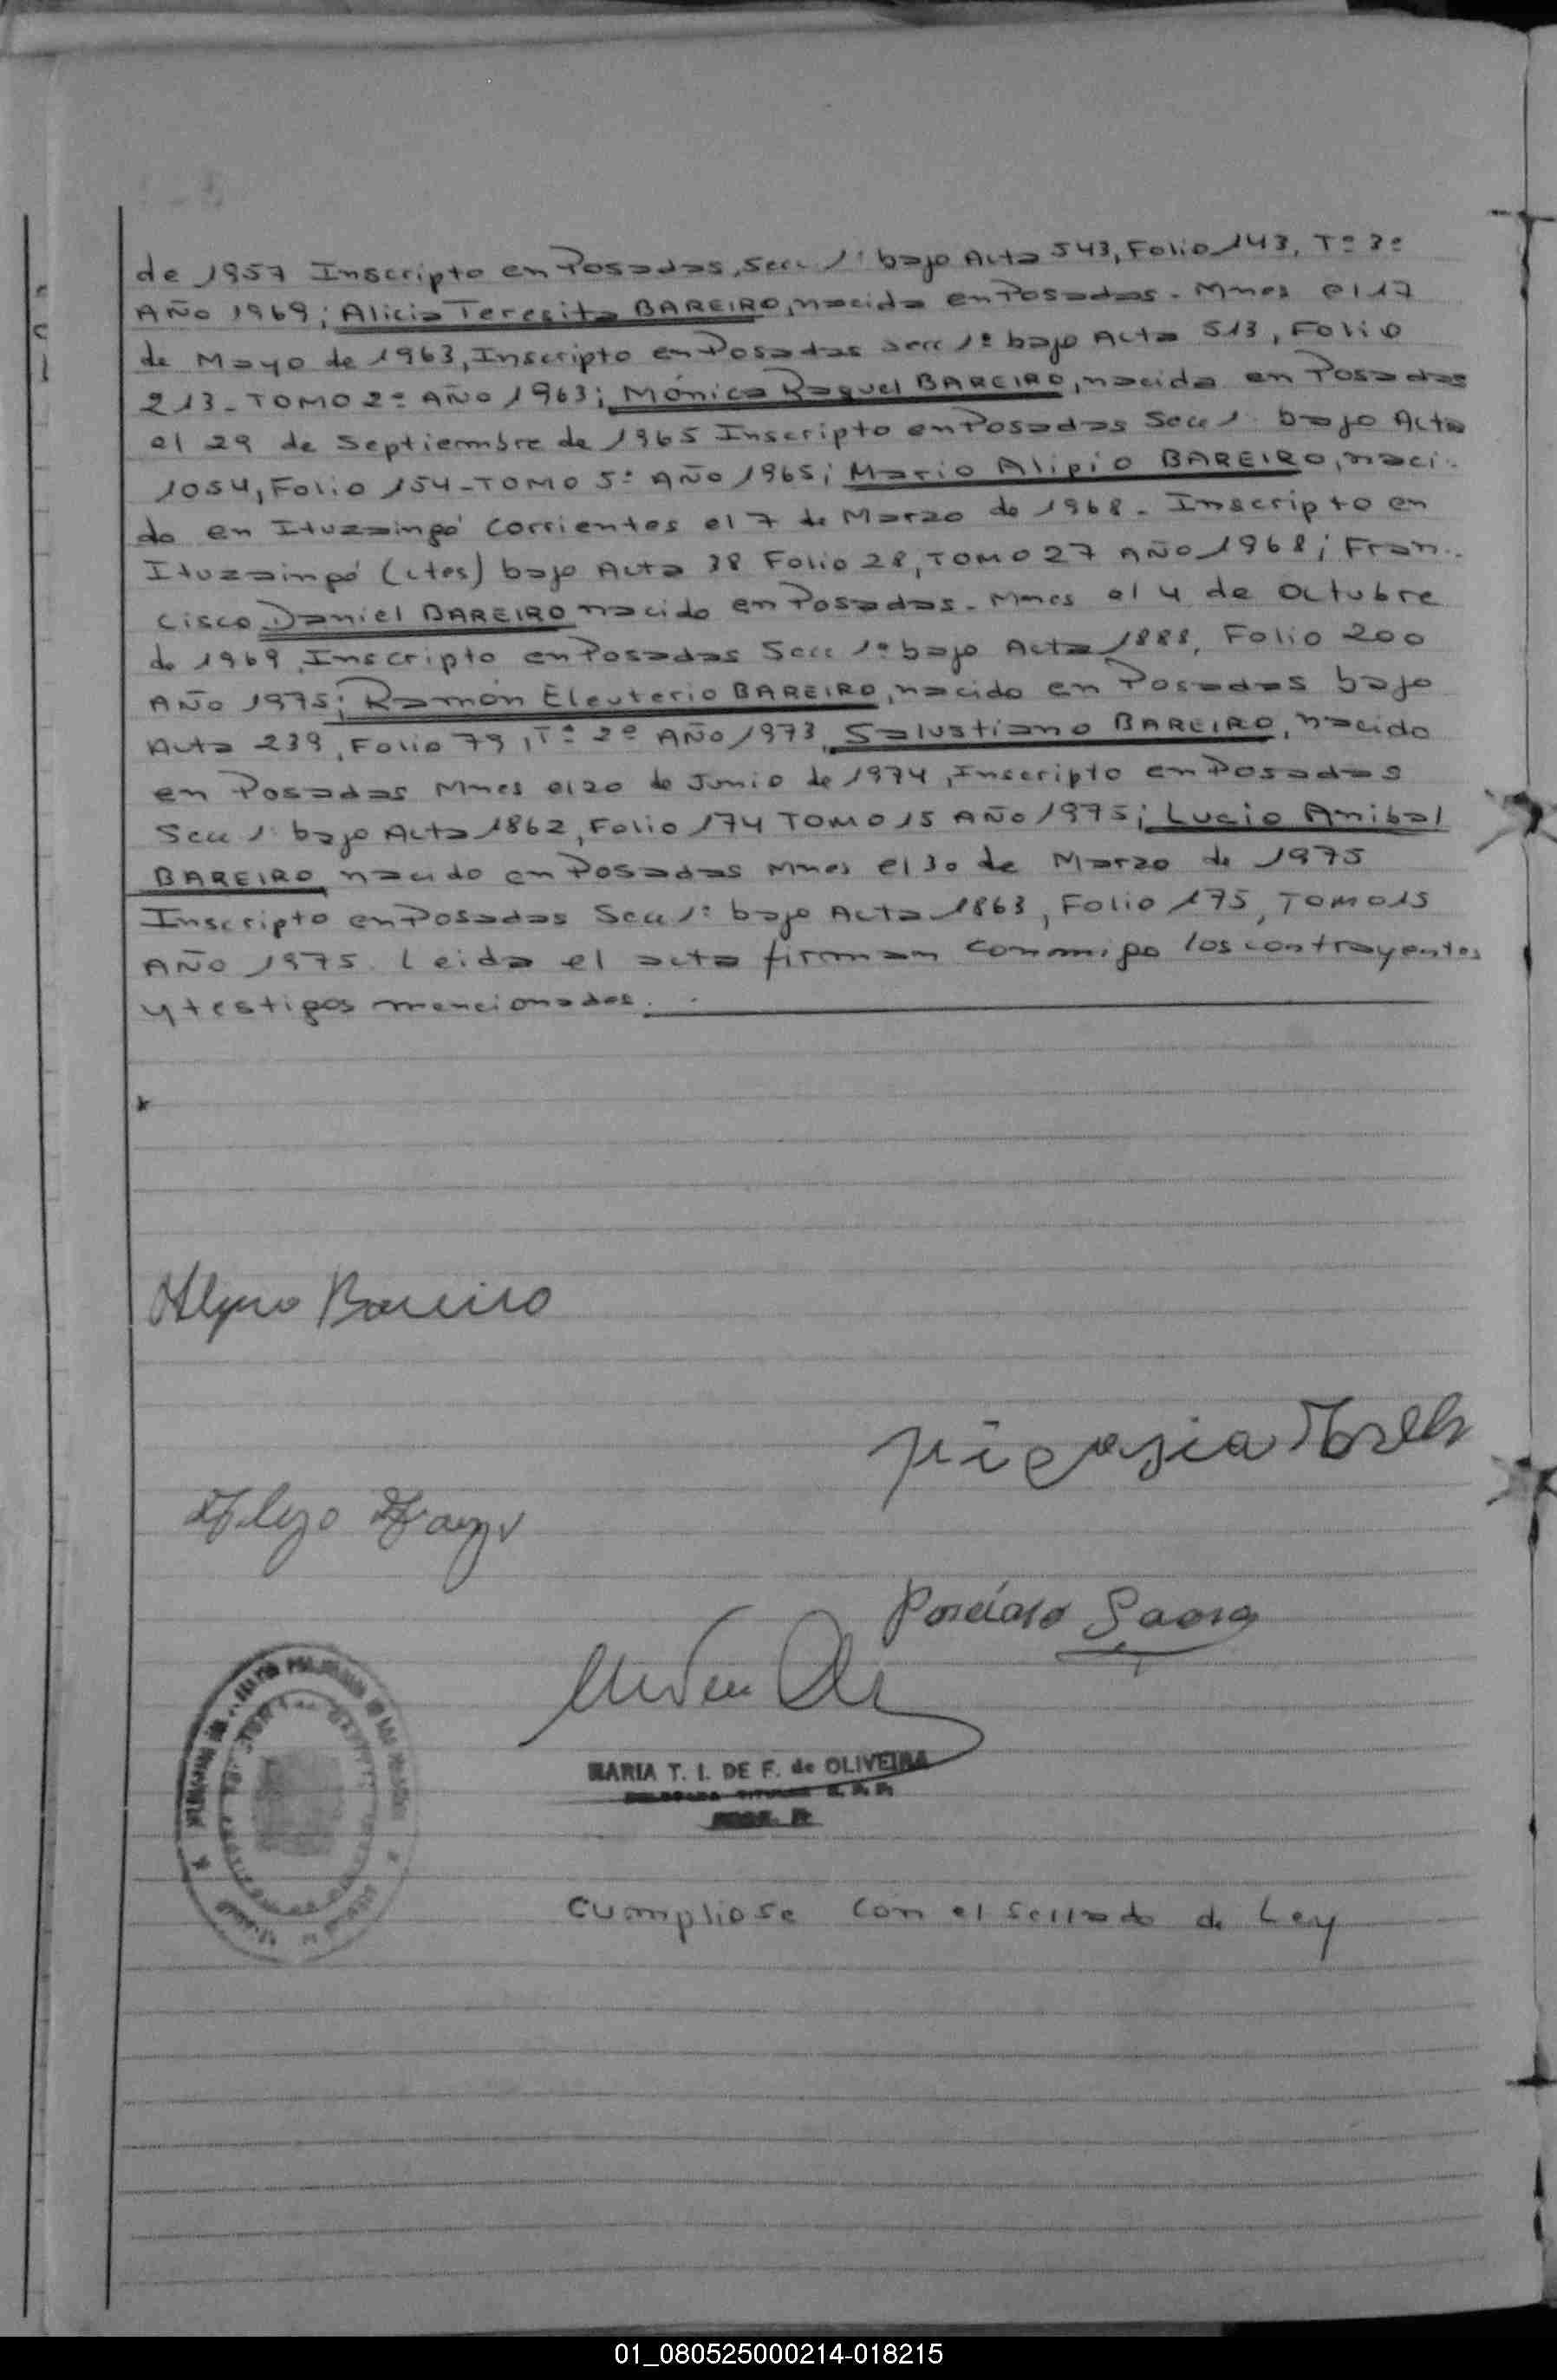 de 1957 Inscripto en Posadas, Secc 1ª bajo Acta 543, Folio 143, Tº 3º
AÑO 1969; Alicia Teresita BAREIRO, nacida en Posadas - Mnes el 17
de Mayo de 1963, Inscripto en Posadas Secc 1ª bajo Acta 513, Folio
213 - TOMO 2º AÑO 1963; Mónica Raquel BAREIRO, nacida en Posadas
el 29 de Septiembre de 1965 Inscripto en Posadas Secc 1ª bajo Acta
1054, Folio 154 - TOMO 5º AÑO 1965; Mario Alipio BAREIRO, naci-
do en Ituzaingó Corrientes el 7 de Marzo de 1968 - Inscripto en
Ituzaingó (ctes) bajo Acta 38 Folio 28, TOMO 27 AÑO 1968; Fran-
cisco Daniel BAREIRO nacido en Posadas - Mnes el 4 de Octubre
de 1969, Inscripto en Posadas Secc 1ª bajo Acta 1888, Folio 200
AÑO 1975; Ramón Eleuterio BAREIRO, nacido en Posadas bajo
Acta 239, Folio 79, Tº 2º AÑO 1973, Salustiano BAREIRO, nacido
en Posadas Mnes el 20 de Junio de 1974, Inscripto en Posadas
Secc 1ª bajo Acta 1862, Folio 174 TOMO 15 AÑO 1975; Lucio Anibal
BAREIRO nacido en Posadas Mnes el 30 de Marzo de 1975
Inscripto en Posadas Secc 1ª bajo Acta 1863, Folio 175, TOMO 15
AÑO 1975. Leida el acta firman conmigo los contrayentes
y testigos mencionados.
Bareiro
MARIA T. I. DE F. de OLIVEIRA
Cumpliose con el sellado de Ley
01_080525000214-018215